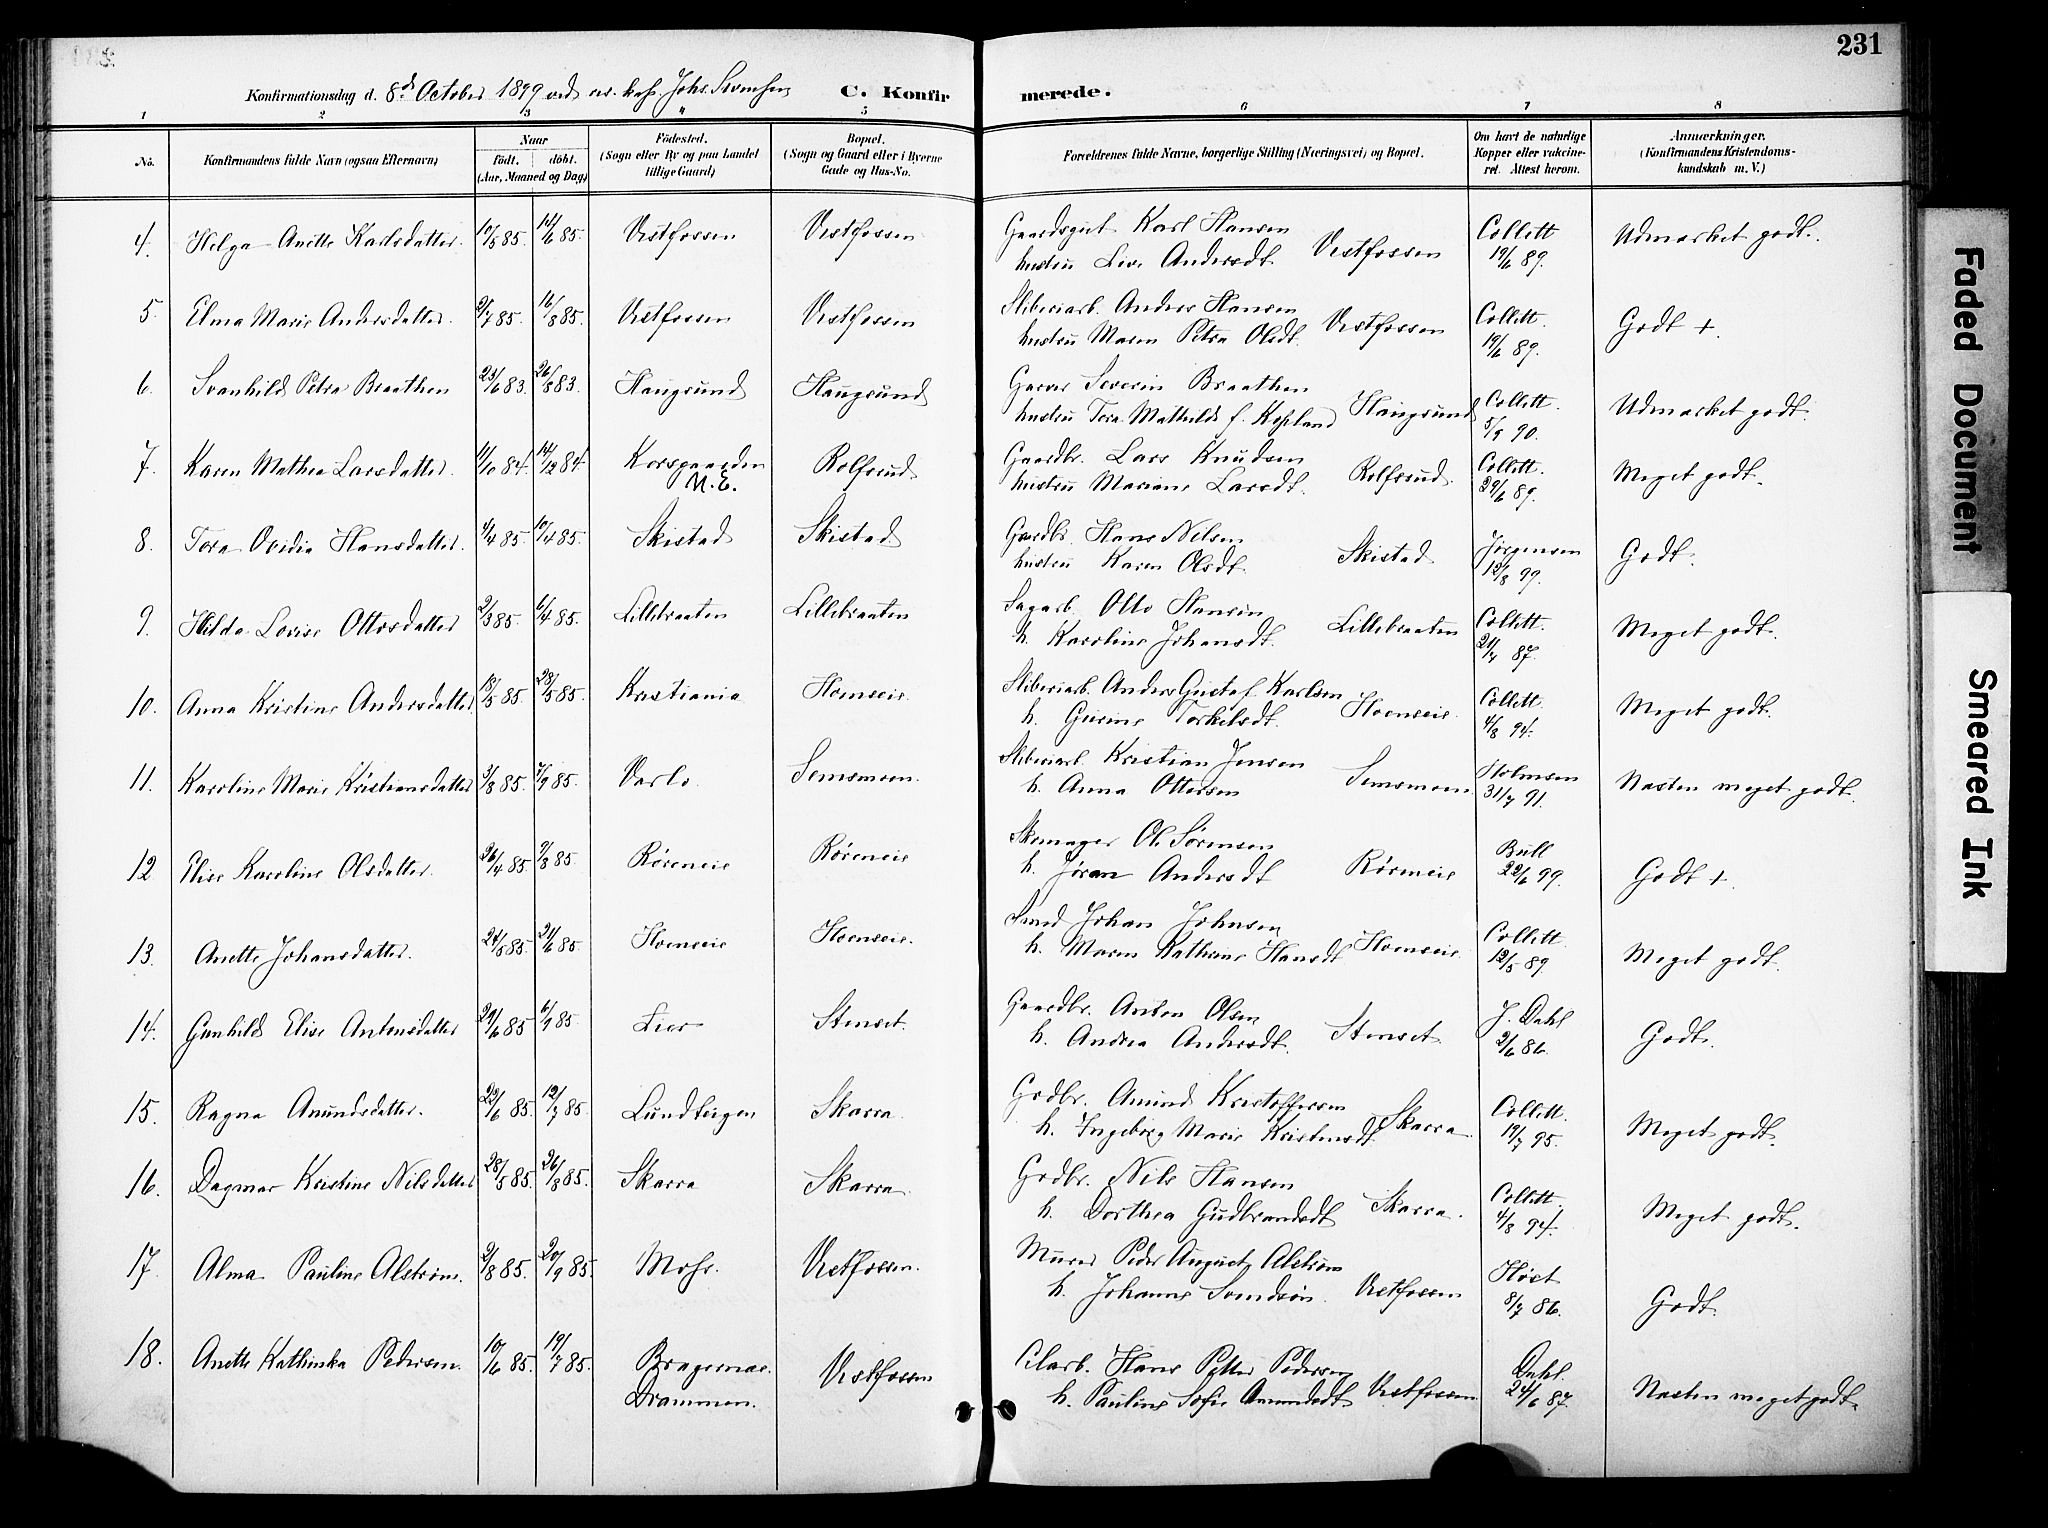 231
Konfirmationsdag d. 8de October 1899 ved Johs. Svendsen C. Konfirmerede.
1 2 3 4 5 6 7 8
No. Konfirmandens fulde Navn (ogsaa Efternavn) Naar født. døbt. (Aar, Maaned og Dag) Födested. (Sogn eller By og paa Landet tillige Gaard) Bopæl. (Sogn og Gaard eller i Byerne Gade og Hus-No. Forældrenes fulde Navne, borgerlige Stilling (Næringsvei) og Bopæl. Om havt de naturlige Kopper eller vakcineret. Attest herom. Anmærkninger. (Konfirmandens Kristendomskundskab m. V.)
4. Helga Anette Karlsdatter. 10/5 85. 14/6 85. Vestfossen Vestfossen Gaardsgut Karl Hansen Vestfossen Collett Udmærket godt.
hustru Live Andersdt. 19/6 89.
5. Elma Marie Andersdatter. 2/7 85. 16/8 85. Vestfossen Vestfossen Sliberiarb. Anders Hansen Vestfossen Collett. Godt +.
hustru Maren Petra Olsdt. 19/6 89.
6. Svanhild Petra Braathen 23/6 83. 26/8 83. Haugsund Haugsund Garver Severin Braathen Haugsund Collett. Udmærket godt.
hustru Tora Mathilde f. 5/9 90.
7. Karen Mathea Larsdatter. 11/10 84. 14/12 84. Korsgaarden Rolfsrud Gaardbr. Lars Knudsen Rolfsrud. Collett. Meget godt.
N. E. hustru Mariane Larsdt. 29/6 89.
8. Tora Ovidia Hansdatter. 4/4 85. 10/4 85. Skistad Skistad Gaardbr. Hans Nilsen Skistad Jørgensen Godt.
hustru Karen Olsdt. 12/8 99.
9. Hilda Lovise Ottosdatter 2/3 85. 6/4 85. Lillebraaten Lillebraaten Sagarb. Otto Hansen Lillebraaten Collett. Meget godt.
h. Karoline Johansdt. 21/7 87.
10. Anna Kristine Andersdatter. 18/5 85. 28/5 85. Kristiania Hoenseie. Sliberiarb. Anders Gustaf Karlsen Hoenseie. Collett. Meget godt.
h. Gurine Torkelsdt. 4/8 94.
11. Karoline Marie Kristiansdatter 3/8 85. 7/9 85. Varlo. Semsmoen. Sliberiarb. Kristian Jensen Semsmoen. Holmsen Næsten meget godt.
h. Anna Ottersen 31/7 91.
12 Elise Karoline Olsdatter. 26/4 85. 9/8 85. Røreneie Røreneie Skomager Ole Sørensen Røreneie Bull Godt +.
h. Jøran Andersdt 22/6 99.
13. Anette Johansdatter. 24/5 85. 21/6 85. Hoenseie Hoenseie. Smed Johan Johnsen Hoenseie. Collett. Meget godt.
h. Maren Kathrine Hansdt 12/5 89.
14. Gunhild Elise Antonsdatter 29/6 85. 6/9 85. Lier Stenset. Gaardbr. Anton Olsen Stenset. J. Dahl Godt.
h. Andrea Andersdt. 2/6 86.
15. Ragna Amundsdatter. 22/6 85. 12/7 85. Lundteigen Skarra. Grdbr. Amund Kristoffersen Skarra. Collett. Meget godt.
h. Ingeborg Marie Kristensdt 19/7 95.
16. Dagmar Kristine Nilsdatter 28/5 85. 26/8 85. Skarra Skarra. Grdbr. Nils Hansen Skarra. Collett. Meget godt.
h. Dorthea Gudbrandsdt 4/8 94.
17. Alma Pauline Alstrøm. 2/8 85. 20/9 85. Moss. Vestfossen. Murer Peder August Alstrøm Vestfossen Høst Godt.
h. Johanne Svendsøn. 8/7 86.
18. Anette Kathinka Pedersen. 10/6 85. 19/7 85. Bragernæs Vestfossen Hans Petter Pedersen Vestfossen Dahl. Næsten meget godt.
Drammen. h. Pauline Sofie Amundsdt 24/6 87.
Faded Document
Smeared Ink